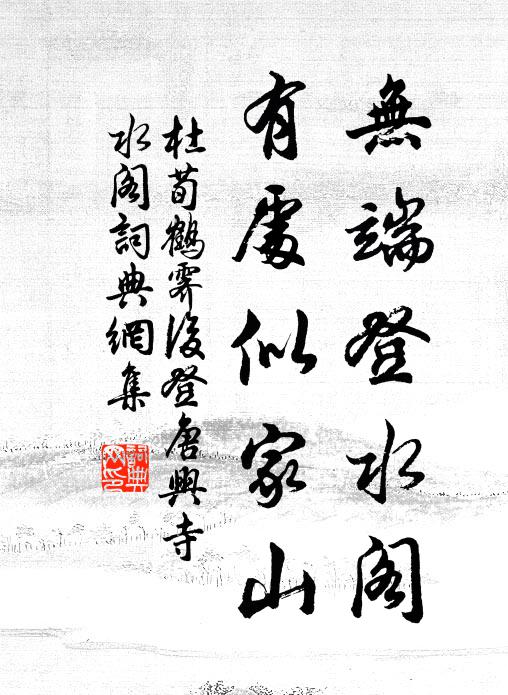 無端登水阁
有處似家山
杜荀鶴霽後登唐興寺
水阁詞典網集
詞典
网印